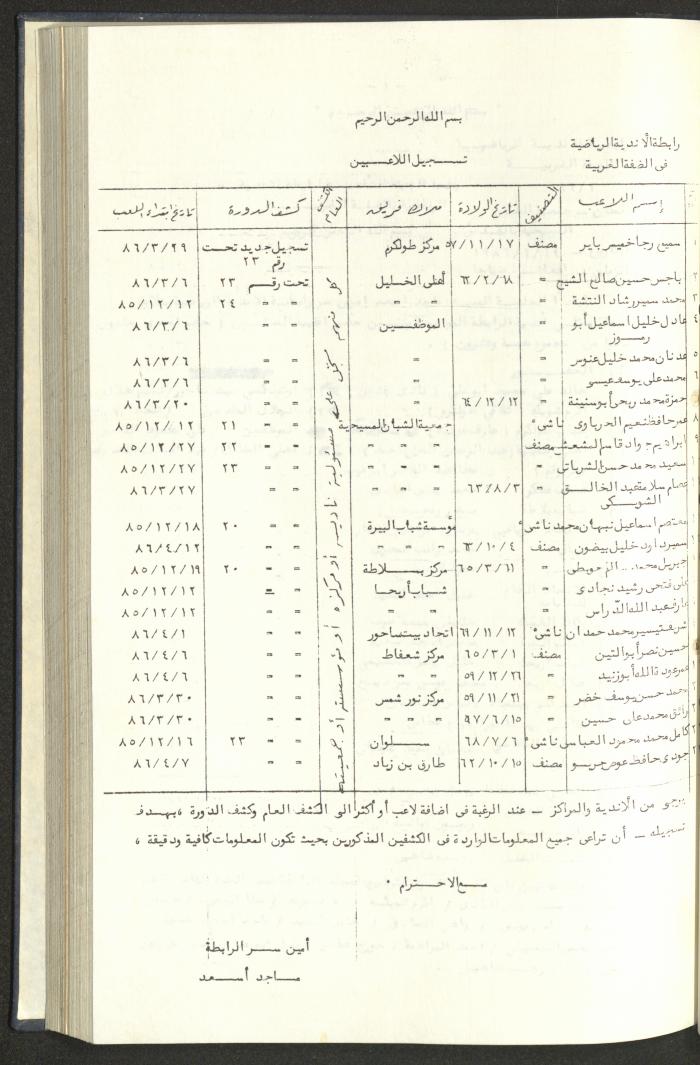 بسم الله الرحمن الرحيم
رابطة الأندية الرياضية
في الضفة الغربية
تسجيل اللاعبين
إسم اللاعب التصنيف تاريخ الولادة ملاك فريق الكشف العام كشف الدورة تاريخ ابتداء اللعب
سميح رجا خميس باير مصنف ٥٧/١١/١٧ مركز طولكرم تسجيل جديد تحت رقم ٢٣ ٨٦/٣/٢٩
باجس حسين صالح الشيخ " ٦٢/٢/١٨ أهلي الخليل تحت رقم ٢٣ ٨٦/٣/٦
محمد سمير رشاد النتشة " " " " " ٢٤ ٨٥/١٢/١٢
عادل خليل اسماعيل أبو رموز " الموظفين " " ٨٦/٣/٦
عدنان محمد خليل عنوس " " " " ٨٦/٣/٦
محمد علي يوسف عيسى " " " " ٨٦/٣/٦
حمزة محمد ربحي أبو سنينة " ٦٤/١٢/١٢ " " " ٨٦/٣/٢٠
عمر حافظ نعيم الحرباوي ناشئ جمعية الشبان المسيحية " " ٢١ ٨٥/١٢/١٢
ابراهيم جواد قاسم المشعشع مصنف " " " " " ٢٢ ٨٥/١٢/٢٧
سعيد محمد حسن الشرباتي " " " " " " ٢٣ ٨٥/١٢/٢٧
عصام سلامة عبد الخالق الشويكي " ٦٣/٨/٣ " " " " " ٨٦/٣/٢٧
معتصم اسماعيل نبهان محمد ناشئ مؤسسة شباب البيرة " " ٢٠ ٨٥/١٢/١٨
سمير داود خليل بيضون مصنف ٦٣/١٠/٤ " " " " " ٨٦/٤/١٢
جبريل محمد " ٦٥/٣/١١ مركز بلاطة " " ٢٠ ٨٥/١٢/١٩
علي فتحي رشيد نجادي " شباب أريحا " " ٨٥/١٢/١٢
عارف عبد الله الدراس " " " " " ٨٥/١٢/١٢
شريف تيسير محمد حمدان ناشئ ٦٩/١١/١٢ اتحاد بيت ساحور " " ٨٦/٤/١
حسين نصر أبو التين مصنف ٦٥/٣/١ مركز شعفاط " " ٨٦/٤/٦
عمر عودة الله أبو زنيد " ٥٩/١٢/٢٦ " " " " ٨٦/٤/٦
محمد حسن يوسف خضر " ٥٩/١١/٢١ مركز نور شمس " " ٨٦/٣/٣٠
رائق محمد علي حسين " ٩٧/٦/١٥ " " " " " ٨٦/٣/٣٠
كامل محمد محمود العباسي ناشئ ٦٨/٧/٦ سلوان " " ٢٣ ٨٥/١٢/١٦
جودي حافظ عوض جريو مصنف ٦٢/١٠/١٥ طارق بن زياد " " ٨٦/٤/٧
كل منهم مسجل على مسئولية ناديه أو مركزه أو مؤسسته أو جمعيته
يرجى من الأندية والمراكز – عند الرغبة في اضافة لاعب أو أكثر الى الكشف العام وكشف الدورة ، بهدف
تسجيله – أن تراعى جميع المعلومات الواردة في الكشفين المذكورين بحيث تكون المعلومات كافية ودقيقة ،
مع الاحترام .
أمين سر الرابطة
ماجد أسعد